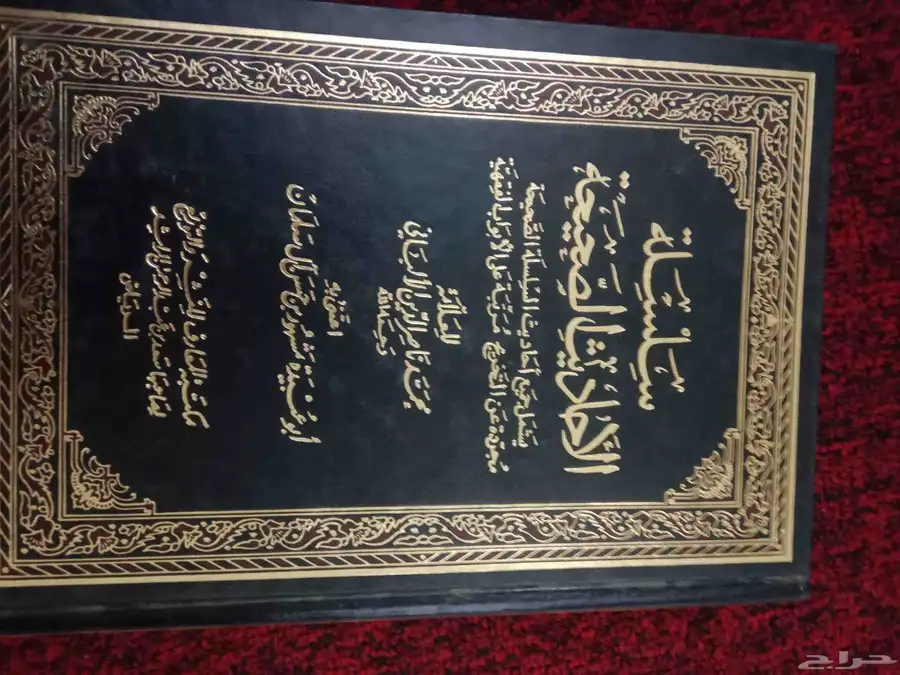 سلسلة
الأحاديث الصحيحة
يشمل جميع أحاديث السلسلة الصحيحة
مجردة عن التخريج مرتبة على الأبواب الفقهية
العلامة
محمد ناصر الدين الألباني
رحمه الله
اعتنى به
أبو عبيدة مشهور بن حسن آل سلمان
مكتبة المعارف للنشر والتوزيع
لصاحبها سعد بن عبد الرحمن الراشد
الرياض
حراج